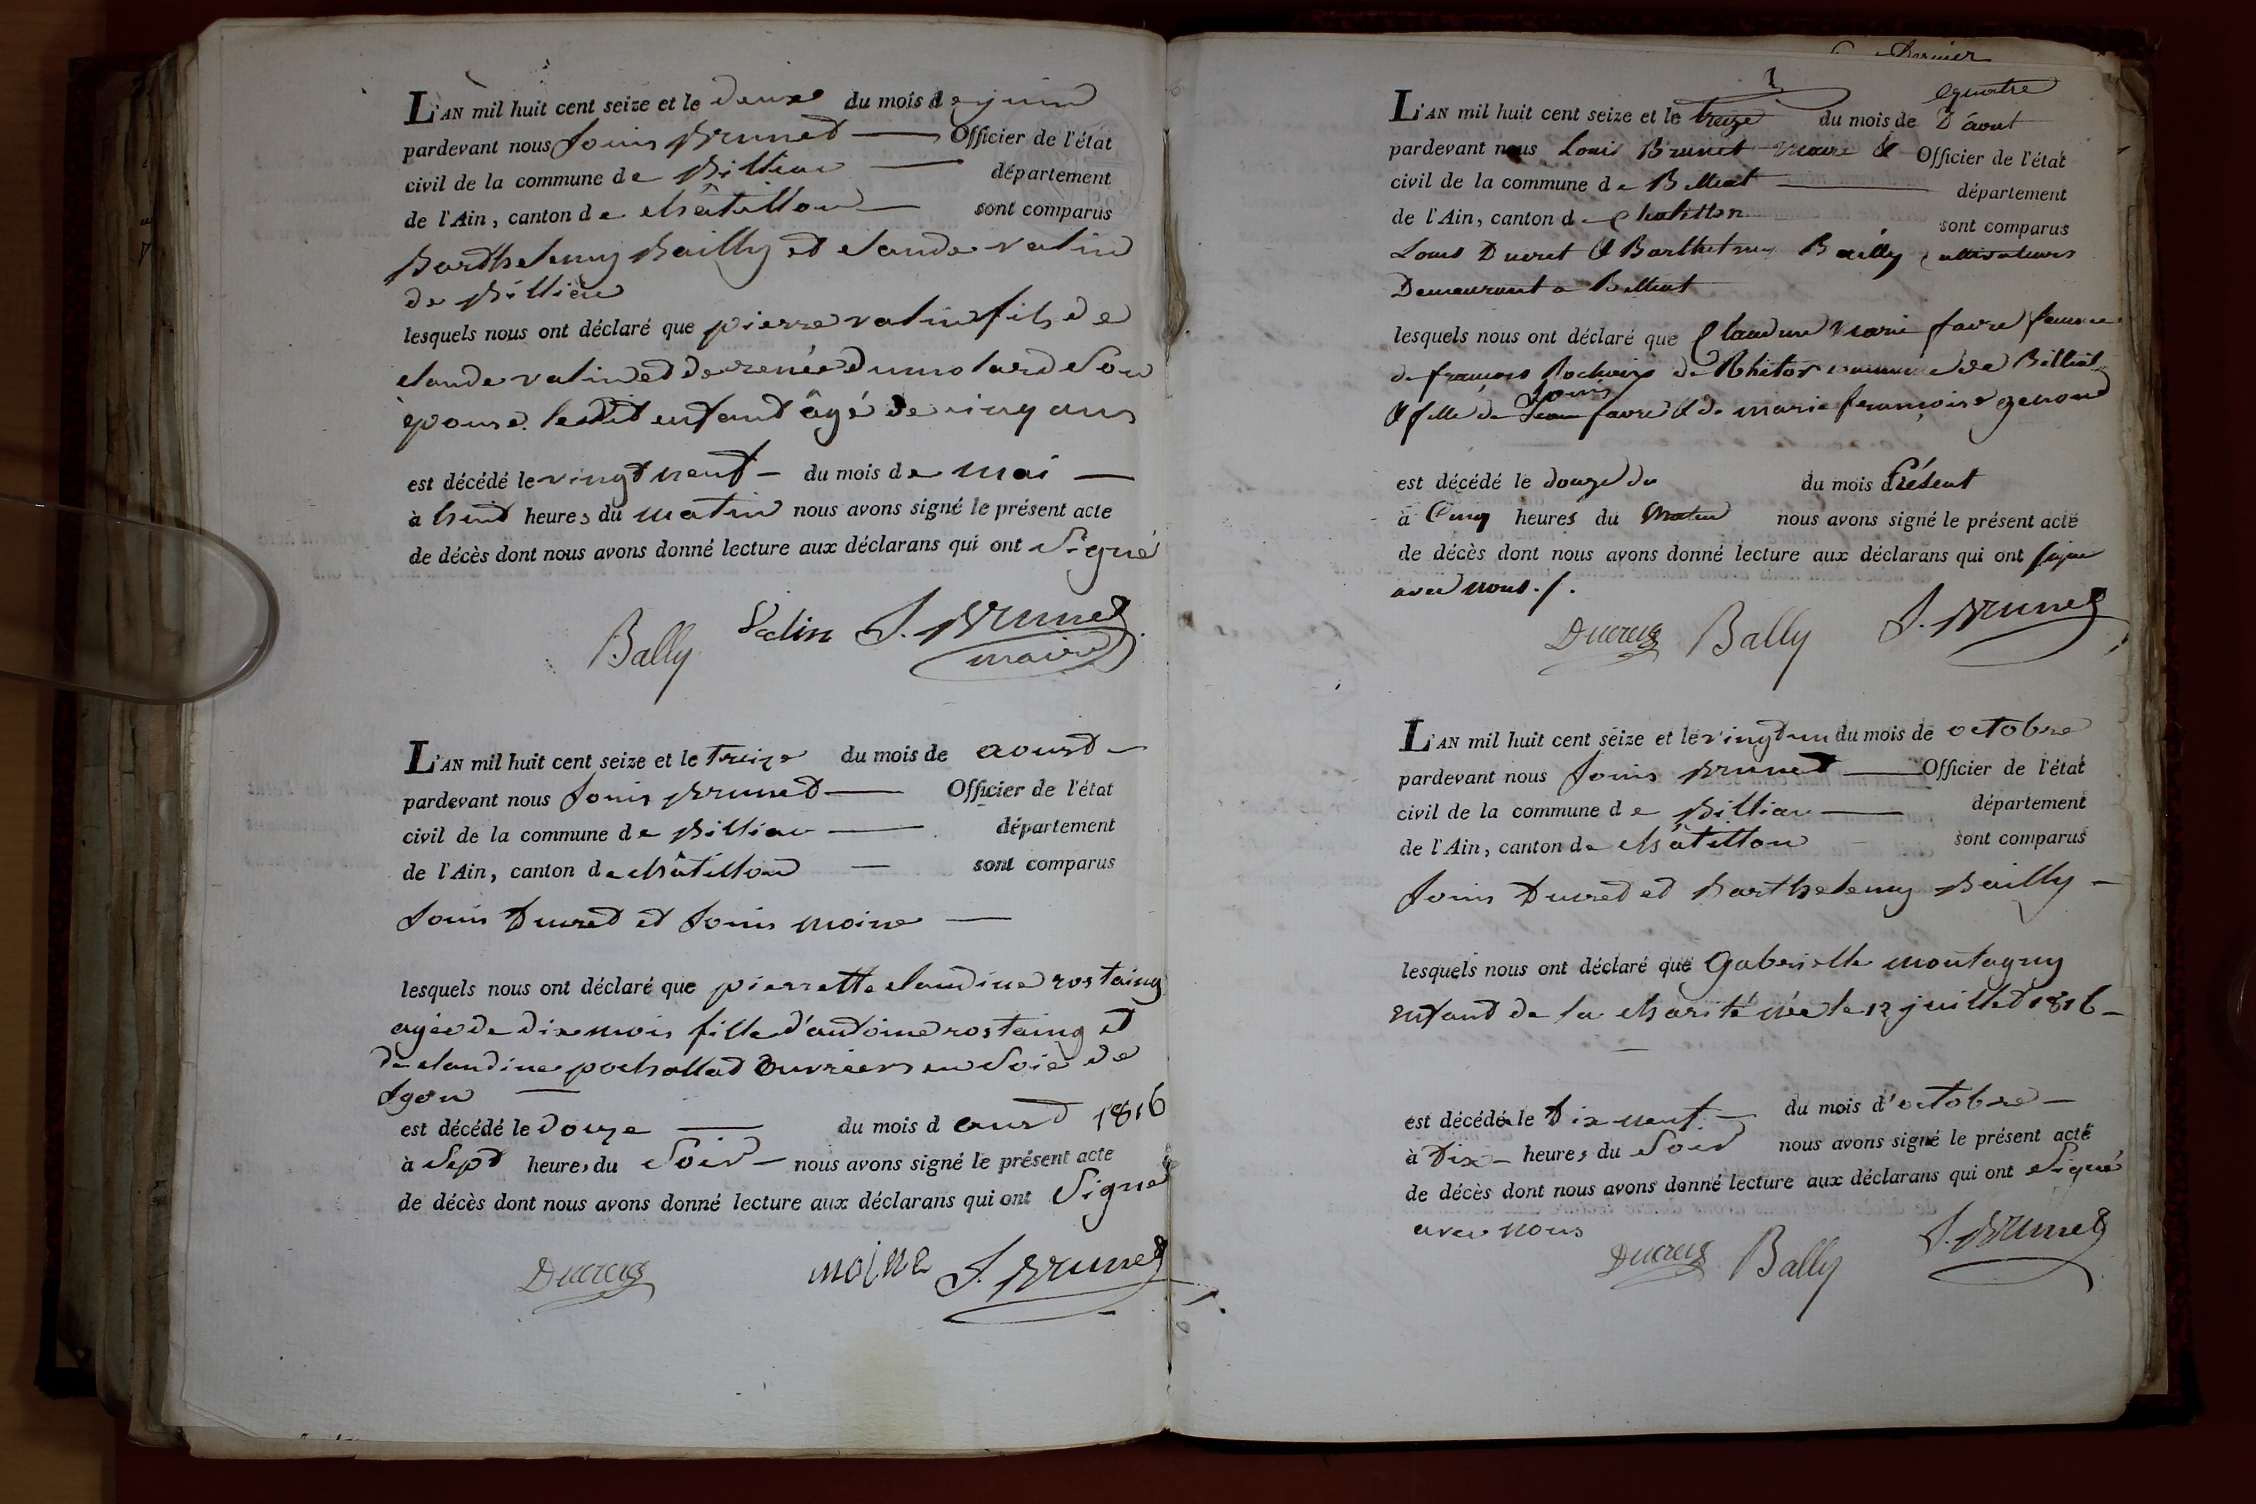 L'AN mil huit cent seize et le deux du mois de juin
pardevant nous Louis Brunet Officier de l'état
civil de la commune de Billiac département
de l'Ain, canton de châtillon sont comparus
Barthelemy Bailly et claude valin
de Billiac
lesquels nous ont déclaré que pierre valin fils de
claude valin et de renée dumolard Son
epouse ledit enfant âgé de cinq ans
est décédé le vingt neuf du mois de mai
à huit heures du matin nous avons signé le présent acte
de décès dont nous avons donné lecture aux déclarans qui ont Signé
Bally Valin L. Brunet
maire
L'AN mil huit cent seize et le treize du mois de aoust
pardevant nous Louis Brunet Officier de l'état
civil de la commune de Billiac département
de l'Ain, canton de châtillon sont comparus
Louis Ducret et Louis moine
lesquels nous ont déclaré que pierrette claudine rostaing
agée de dix mois fille d'antoine rostaing et
de claudine pochollad ouvriers en Soie de
Lyon
est décédé le douze du mois d aout 1816
à Sept heures du Soir nous avons signé le présent acte
de décès dont nous avons donné lecture aux déclarans qui ont Signé
Ducret moine L. Brunet
Dernier
quatre
L'AN mil huit cent seize et le treize du mois de D'aout
pardevant nous Louis Brunet maire & Officier de l'état
civil de la commune de Billiat département
de l'Ain, canton de Chatillon sont comparus
Louis Ducret & Barthelmy Bailly cultivateurs
Demeurant a Billiat
lesquels nous ont déclaré que Claudine Marie favre femme
de françois Rochaix de Rhétor commune de Billiat
Louis
& fille de Jean favre & de marie françoise genond
est décédé le douze du du mois Présent
à Cinq heures du Matin nous avons signé le présent acte
de décès dont nous avons donné lecture aux déclarans qui ont signé
avec nous ./.
Ducret Bally L. Brunet
L'AN mil huit cent seize et le vingt un du mois de octobre
pardevant nous Louis Brunet Officier de l'état
civil de la commune de Billiac département
de l'Ain, canton de châtillon sont comparus
Louis Ducret et Barthelemy Bailly
lesquels nous ont déclaré que Gabrielle montagny
enfant de la charité née le 12 juillet 1816
est décédée le Dix neuf du mois d'octobre
à Dix heures du Soir nous avons signé le présent acte
de décès dont nous avons donné lecture aux déclarans qui ont Signé
avec nous
Ducret Bally L. Brunet